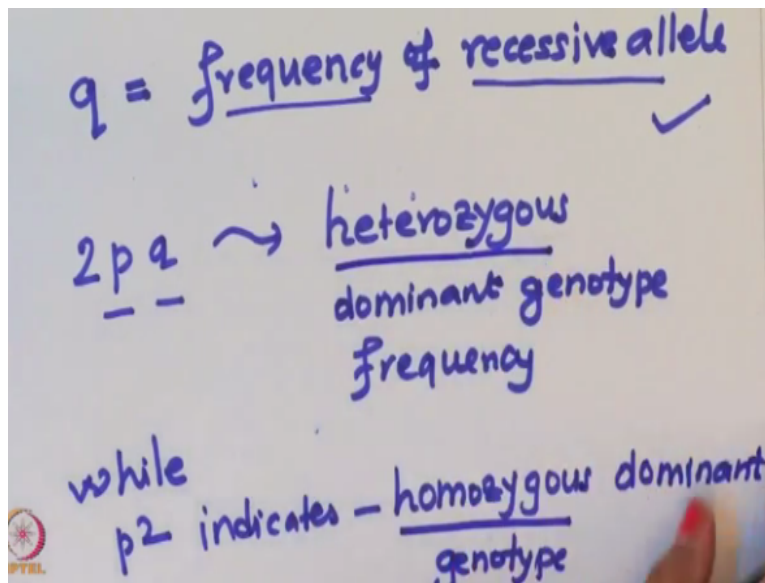 q = frequency of recessive allele
2pq heterozygous
dominant genotype
frequency
while
p2 indicates - homozygous dominant
genotype
PTEL